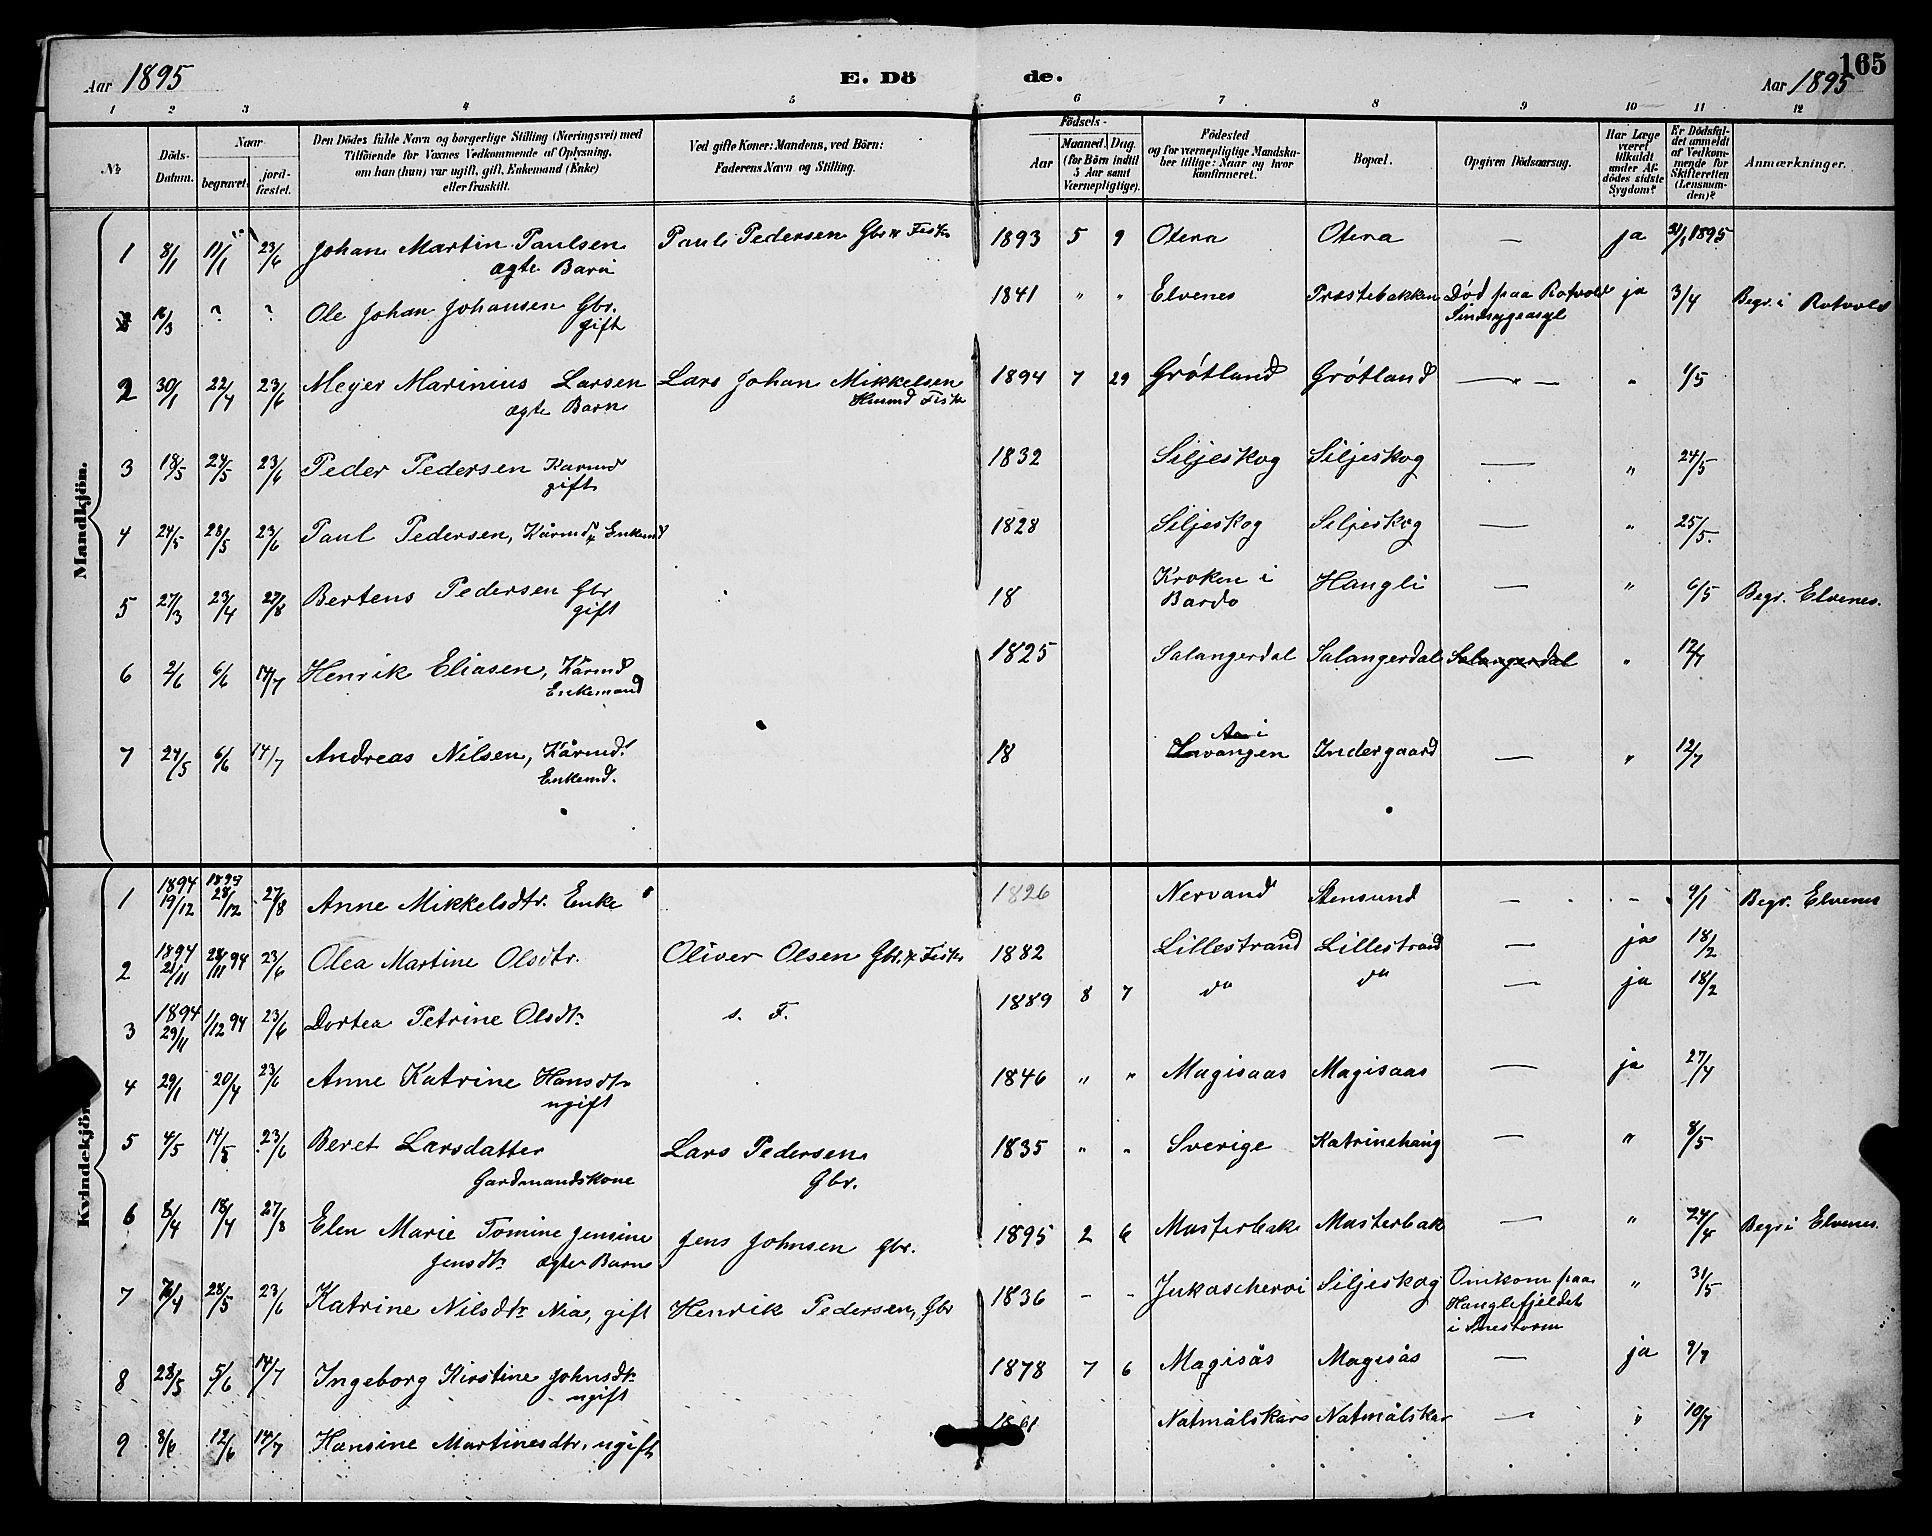 165
Aar 1895 E. Dö de. Aar 1895
1 2 3 4 5 6 7 8 9 10 11 12
№ Döds-Datum. Naar begravet. jord-fæstet. Den Dödes fulde Navn og borgerlige Stilling (Næringsvei) med Tilföiende for Voxnes Vedkommende af Oplysning. om han (hun) var ugift, gift, Enkemand (Enke) eller fraskilt. Ved gifte Koner: Mandens, ved Börn: Faderens Navn og Stilling. Födsels- Aar Maaned. Dag. (for Börn indtil 5 Aar samt Værnepligtige). Födested og for værnepligtige Mandska-ber tillige: Naar og hvor konfirmeret. Bopæl. Opgiven Dödsaarsag. Har Læge været tilkaldt under Af-dödes sidste Sygdom? Er Dödsfal-det anmeldt af Vedkom-mende for Skifteretten (Lensman-den)? Anmærkninger.
Mandkjön.
1 8/1 11/1 23/6 Johan Martin Paulsen Paul Pedersen Gbr & Fisker 1893 5 9 Otera Otera — ja 21/1 1895
ægte Barn
16/3 ? ? Ole Johan Johansen Gbr. 1841 " " Elvenes Præstebakken Død paa Rotvold ja 3/4 Begr. i Rotvold
gift Sindsygeasyl
2 30/1 22/4 23/6 Meyer Marinius Larsen Lars Johan Mikkelsen 1894 7 29 Grøtland Grøtland — " — " 1/5
ægte Barn Husmd Fisker
3 18/5 24/5 23/6 Peder Pedersen Kaarmd 1832 Siljeskog Siljeskog — " 24/5
gift
4 24/5 28/5 23/6 Paul Pedersen, Kårmd & Enkemd 1828 Siljeskog Siljeskog — " 25/5.
5 27/3 23/4 27/8 Bertens Pedersen Gbr 18 Kroken i Hangli — " 6/5 Begr. Elvenes.
gift Bardo
6 2/6 6/6 14/7 Henrik Eliasen, Kårmd 1825 Salangerdal Salangerdal Salangerdal " 12/7
Enkemand
7 24/5 6/6 14/7 Andreas Nilsen, Kårmd. 18 Aa i Lavangen Indergaard — " 12/7
Enkemd.
Kvindekjön
1 1894 19/12 28/12 27/8 Anne Mikkelsdtr. Enke 1826 Nervand Stensund — — 9/1 Begr. Elvenes
2 1894 2/11 28/11 94 23/6 Olea Martine Olsdtr. Oliver Olsen Gbr. & Fisker 1882 Lillestrand Lillestrand — ja 18/2
3 1894 29/11 1/12 94 23/6 Dortea Petrine Olsdtr s. F. 1889 8 7 do do — ja 18/2
4 29/1 20/4 23/6 Anne Katrine Hansdtr 1846 " " Magisaas Magisaas — ja 27/4
ugift
5 4/5 14/5 23/6 Beret Larsdatter Lars Pedersen 1835 " " Sverige Katrinehaug — " 8/5
Gardmandskone Gbr.
6 8/4 18/4 27/8 Elen Marie Tomine Jensine Jens Johnsen Gbr. 1895 2 6 Masterbak Masterbak — " 24/4 Begr i Elvenes.
Jensdtr ægte Barn
7 28/5 23/6 Katrine Nilsdtr Nia, gift Henrik Pedersen, Gbr 1836 - - Jukaschervi Siljeskog Omkom paa " 31/5
Hanglefjeldet
i Snestorm
8 28/5 5/6 14/7 Ingeborg Kirstine Johnsdtr. 1878 7 6 Magisås Magisås — ja 9/7
ugift
9 8/6 12/6 14/7 Hansine Martinesdtr. ugift 1861 Natmålskar Natmålskar — " 10/7